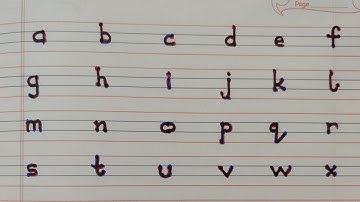 Page
a b c d e f
g h i j k l
m n o p q r
s t u v w x